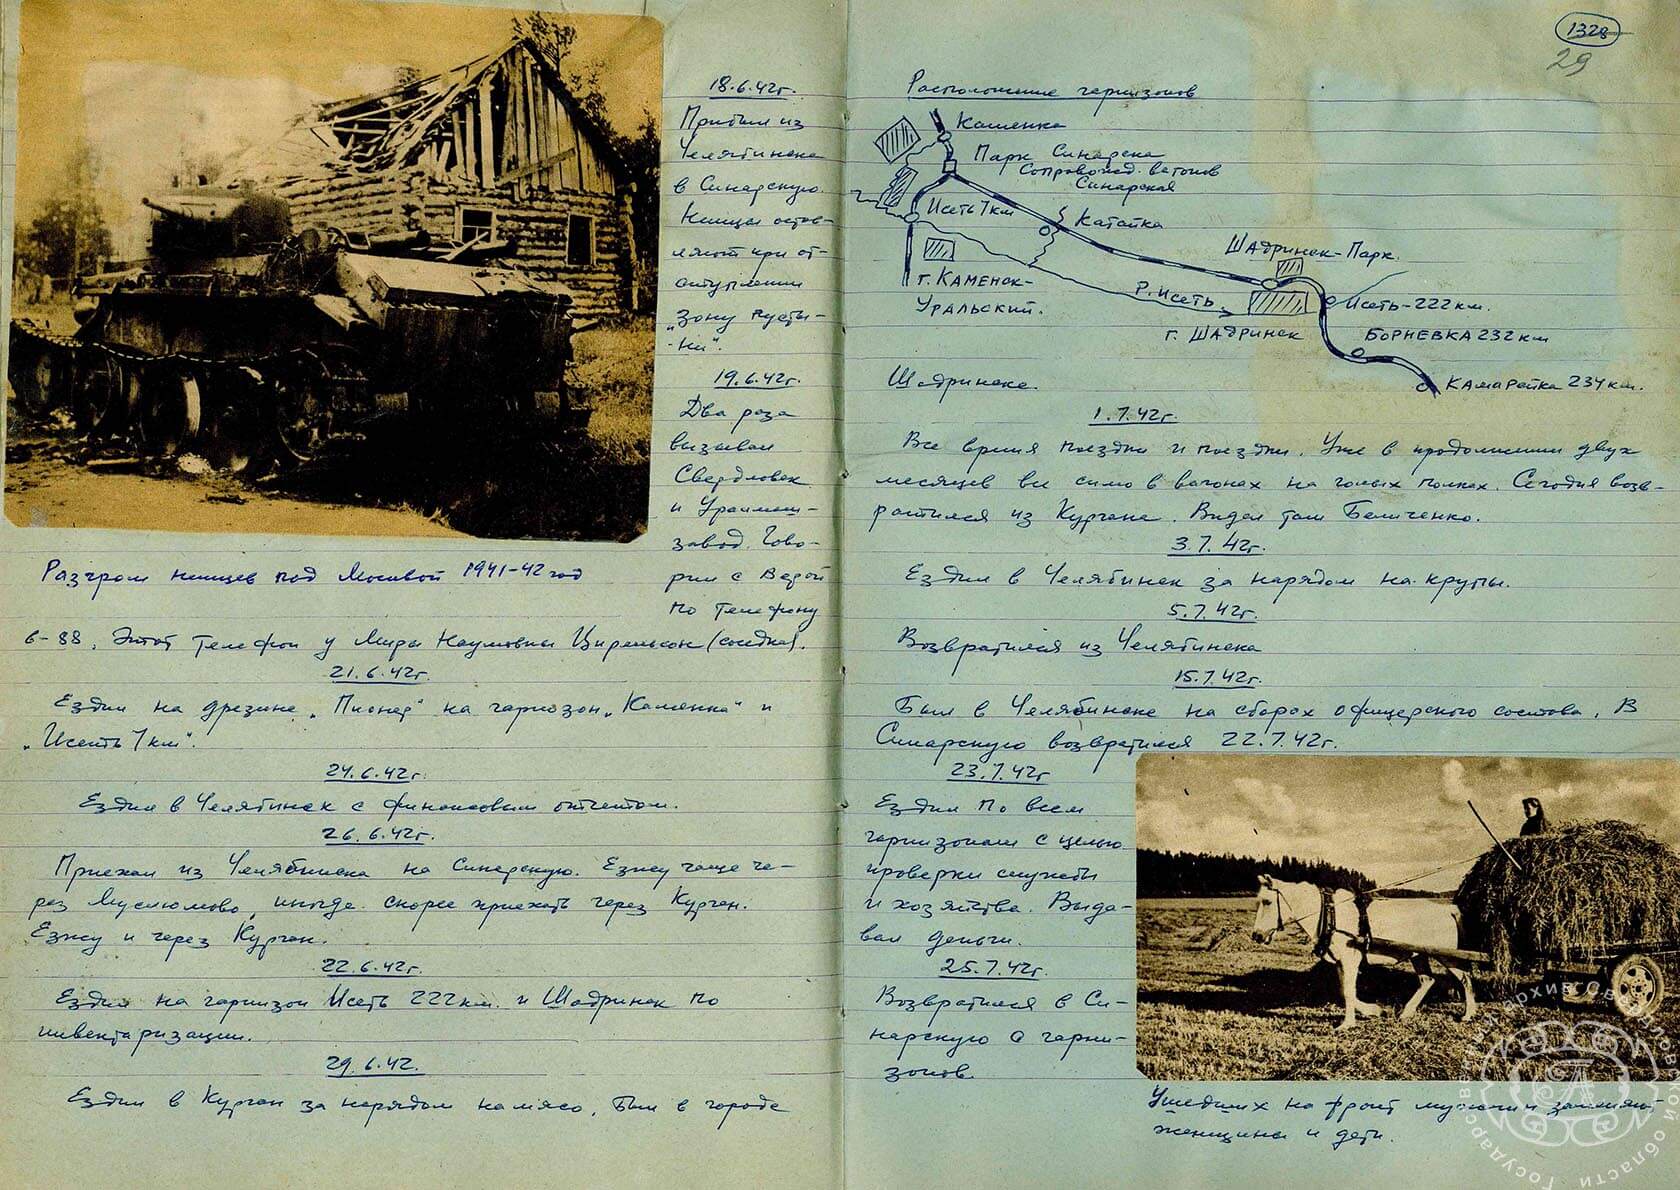 18.6.42г.
Прибыл из
Челябинска
в Синарскую.
Немцы остав-
ляют при от-
ступлении
„Зону пусты-
-ни".
19.6.42г.
Два раза
вызывал
Свердловск
и Уралмаш-
завод. Гово-
рил с Верой
по телефону
6-88. Этот телефон у Миры Наумовны Цирельсон (соседка).
Разгром немцев под Москвой 1941-42 год
21.6.42г.
Ездил на дрезине „Пионер" на гарнизон „Каменка" и
„Исеть 7 км".
24.6.42г.
Ездил в Челябинск с финансовым отчетом.
26.6.42г.
Приехал из Челябинска на Синарскую. Езжу чаще че-
рез Муслюмово, иногда скорее приехать через Курган.
Езжу и через Курган.
22.6.42г.
Ездил на гарнизон Исеть 222 км. и Шадринск по
инвентаризации.
29.6.42.
Ездил в Курган за нарядом на мясо. Был в городе
1328
29
Расположение гарнизонов
Каменка
Парк Синарская
Сопровожд. вагонов
Синарская
Исеть 7 км
Катайка
Шадринск-Парк.
г. Каменск-
Уральский.
Р. Исеть
Исеть-222 км.
г. Шадринск
Борневка 232 км
Камарейка 234 км.
Шадринске.
1.7.42г.
Все время поездки и поездки. Уже в продолжении двух
месяцев все сплю в вагонах на голых полках. Сегодня возв-
ратился из Кургана. Видел там Беличенко.
3.7.42г.
Ездил в Челябинск за нарядом на крупы.
5.7.42г.
Возвратился из Челябинска
15.7.42г.
Был в Челябинске на сборах офицерского состава. В
Синарскую возвратился 22.7.42г.
23.7.42г
Ездил по всем
гарнизонам с целью
проверки службы
и хозяйства. Выда-
вал деньги.
25.7.42г.
Возвратился в Си-
нарскую с гарни-
зонов.
Ушедших на фронт мужчин заменяют
женщины и дети.
Государственный архив Свердловской области